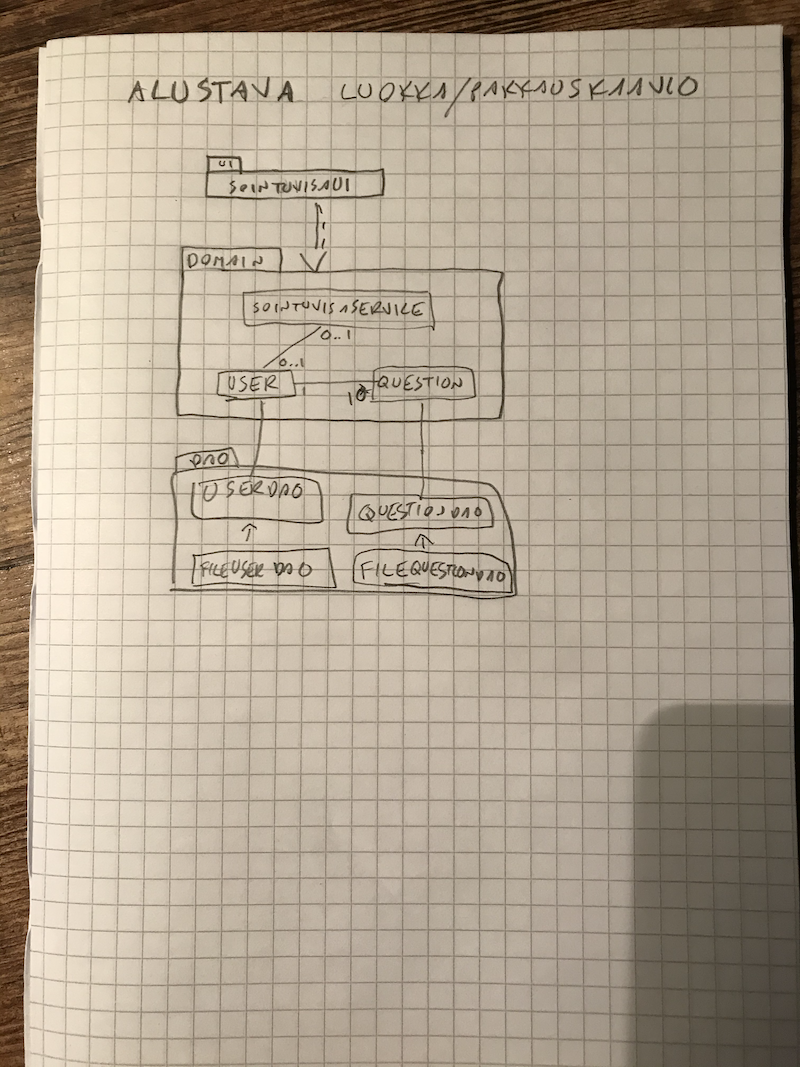 ALUSTAVA LUOKKA/PAKKAUSKAAVIO
UI
SOINTUVISAUI
DOMAIN
SOINTUVISASERVICE
0..1
0..1
USER
1
10
QUESTION
DAO
USERDAO
QUESTIONDAO
FILEUSERDAO
FILEQUESTIONDAO